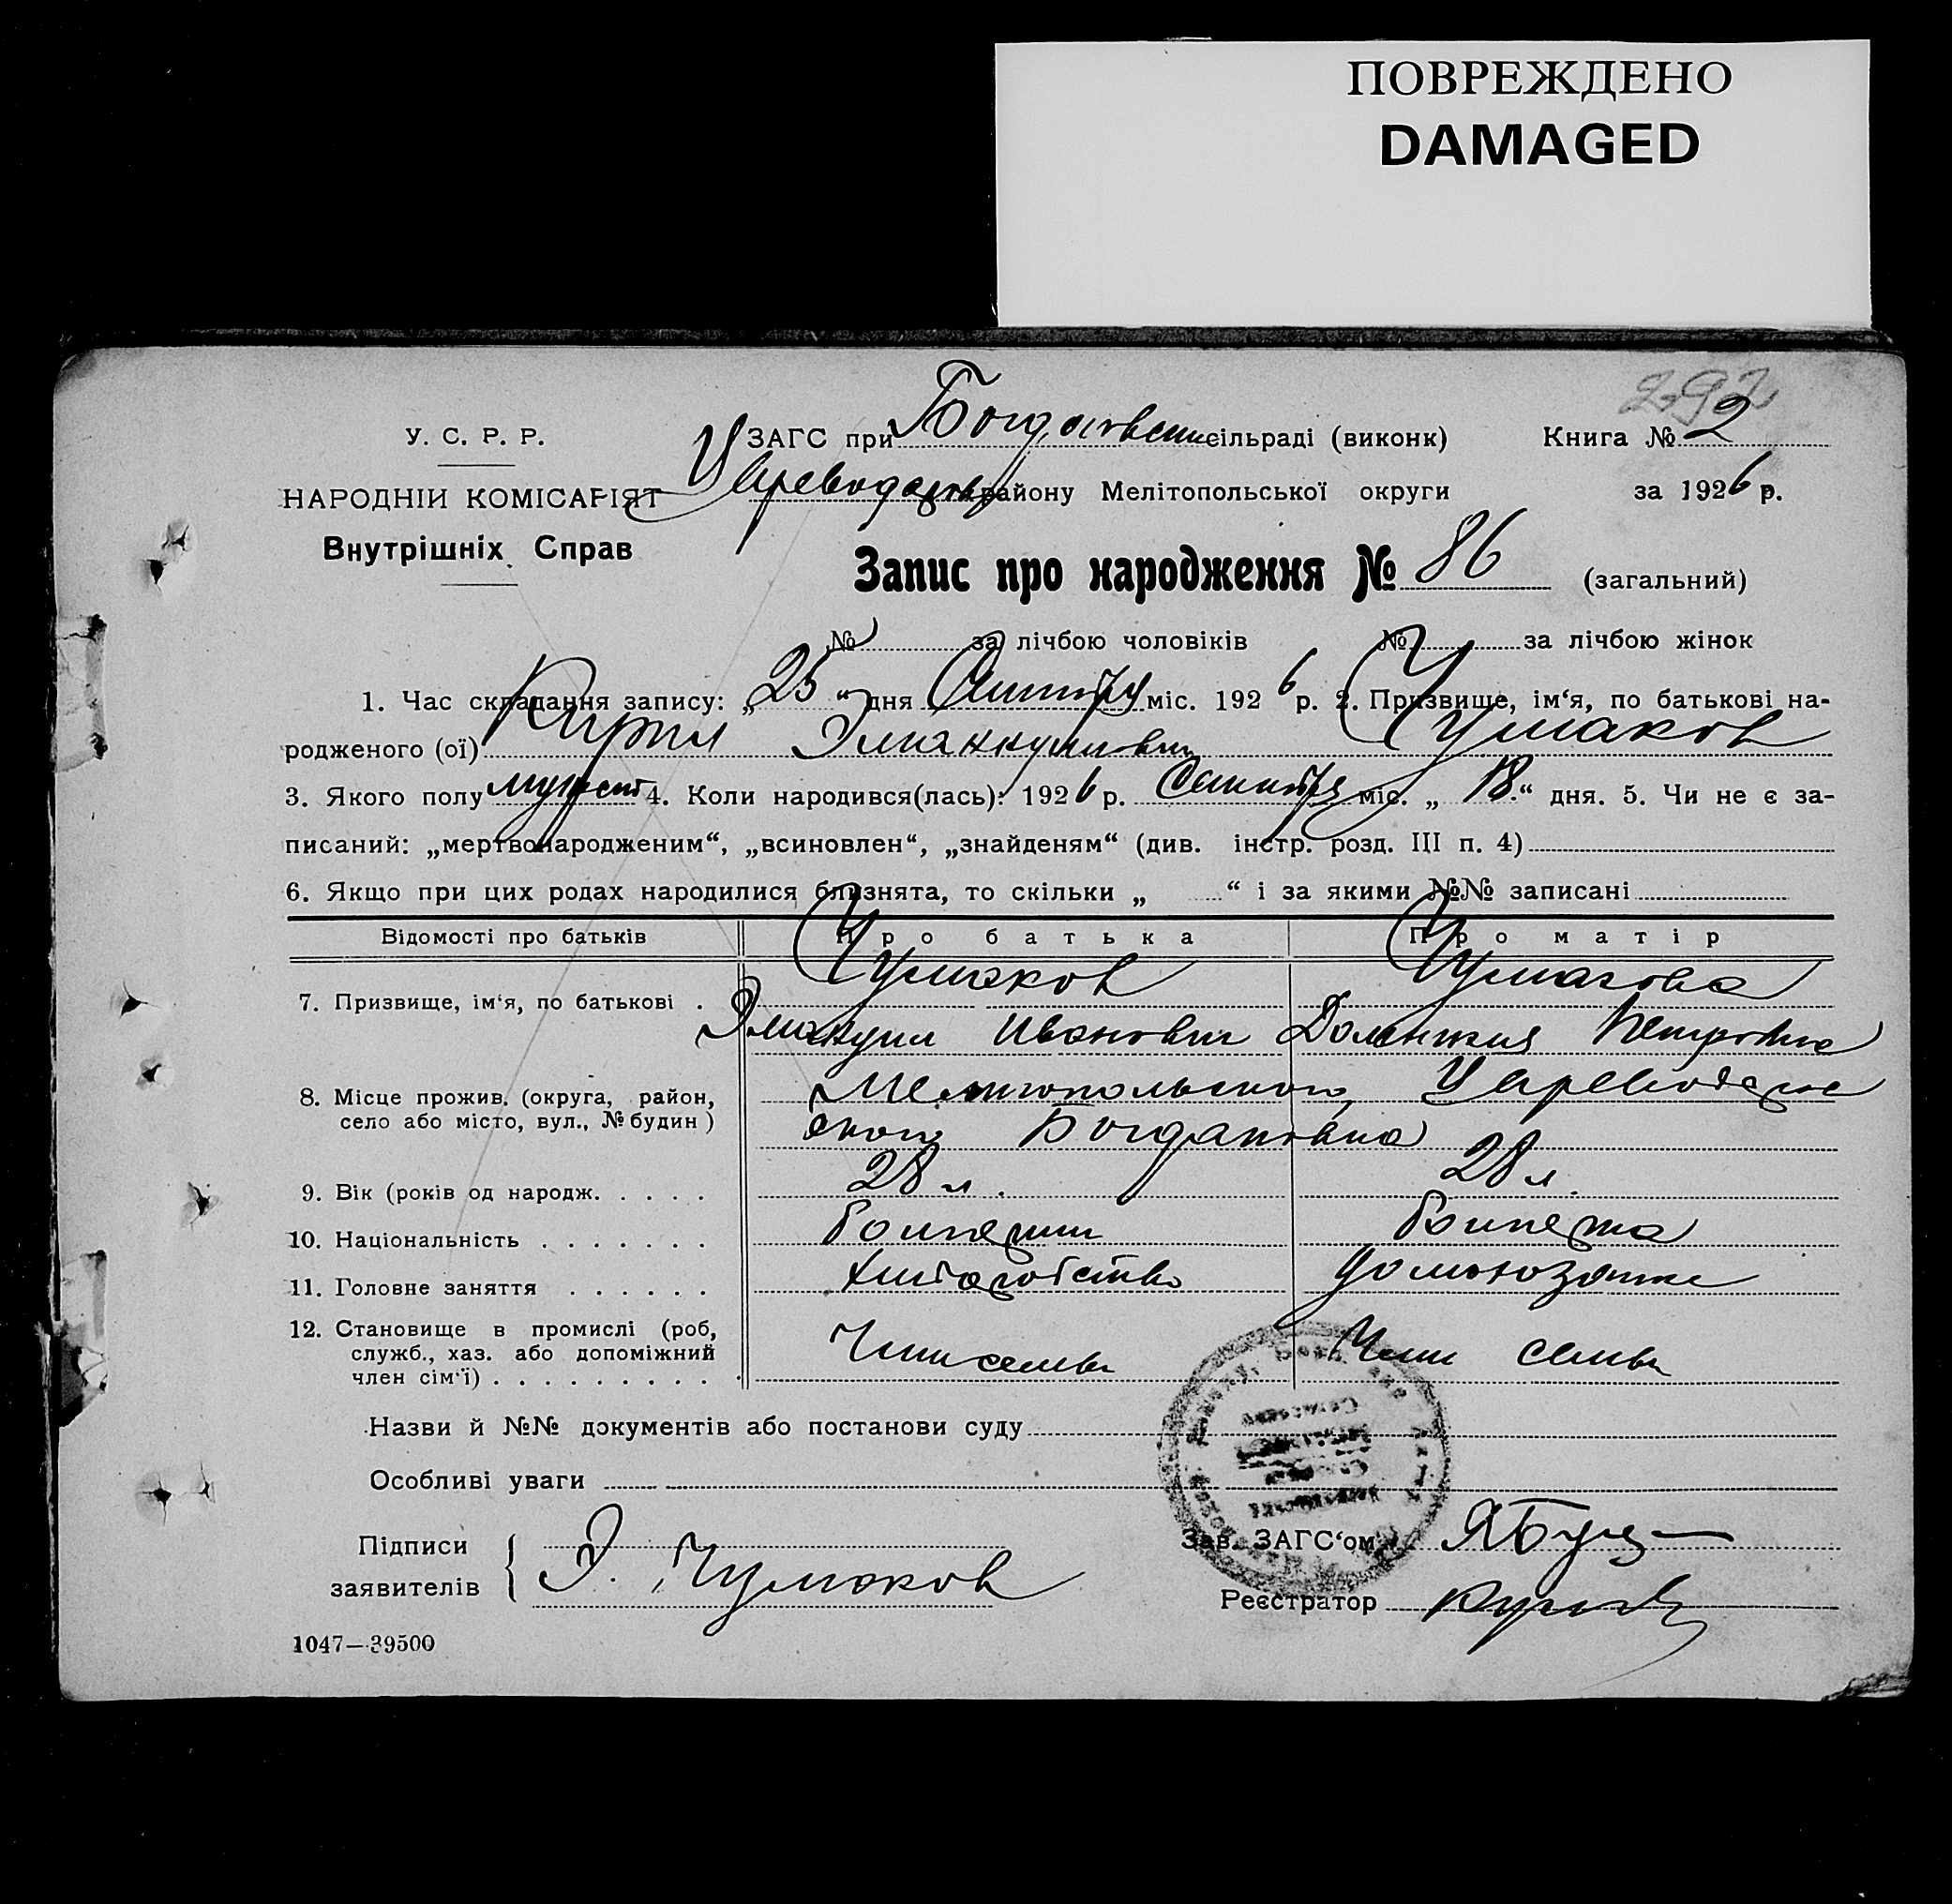 ПОВРЕЖДЕНО
DAMAGED
292
У. С. Р. Р.
ЗАГС при Богдановск сільраді (виконк) Книга № 2
НАРОДНІЙ КОМІСАРІЯТ
Цареводар району Мелітопольської округи за 1926 р.
Внутрішніх Справ
Запис про народження № 86 (загальний)
№ за лічбою чоловіків № за лічбою жінок
1. Час складання запису: „25“ дня Сентября міс. 1926 р. 2. Призвище, ім‘я, по батькові на-
родженого (ої) Кирил Эмануилович Чумаков
3. Якого полу мужск 4. Коли народився(лась): 1926 р. Сентября міс. „18.“ дня. 5. Чи не є за-
писаний: „мертвонародженим“, „всиновлен“, „знайденям“ (див. інстр. розд. III п. 4)
6. Якщо при цих родах народилися близнята, то скільки „ “ і за якими №№ записані
Відомості про батьків Про батька Про матір
7. Призвище, ім‘я, по батькові . Чумаков Чумакова
Эмануил Иванович Петровна
8. Місце прожив. (округа, район, Мелитопольского, Цареводаров
село або місто, вул., № будин) ского Богдановка
9. Вік (років од народж. . . . . 28 л. 28 л.
10. Національність . . . . . . .
11. Головне заняття . . . . . . Хлебопашество домохозяйка
12. Становище в промислі (роб,
служб., хаз. або допоміжний Член семьи Член семьи
член сім‘ї) . . . . . . . . . .
Назви й №№ документів або постанови суду
Особливі уваги
Підписи
заявителів Э. Чумаков
Зав. ЗАГС‘ом
Реєстратор
1047—39500